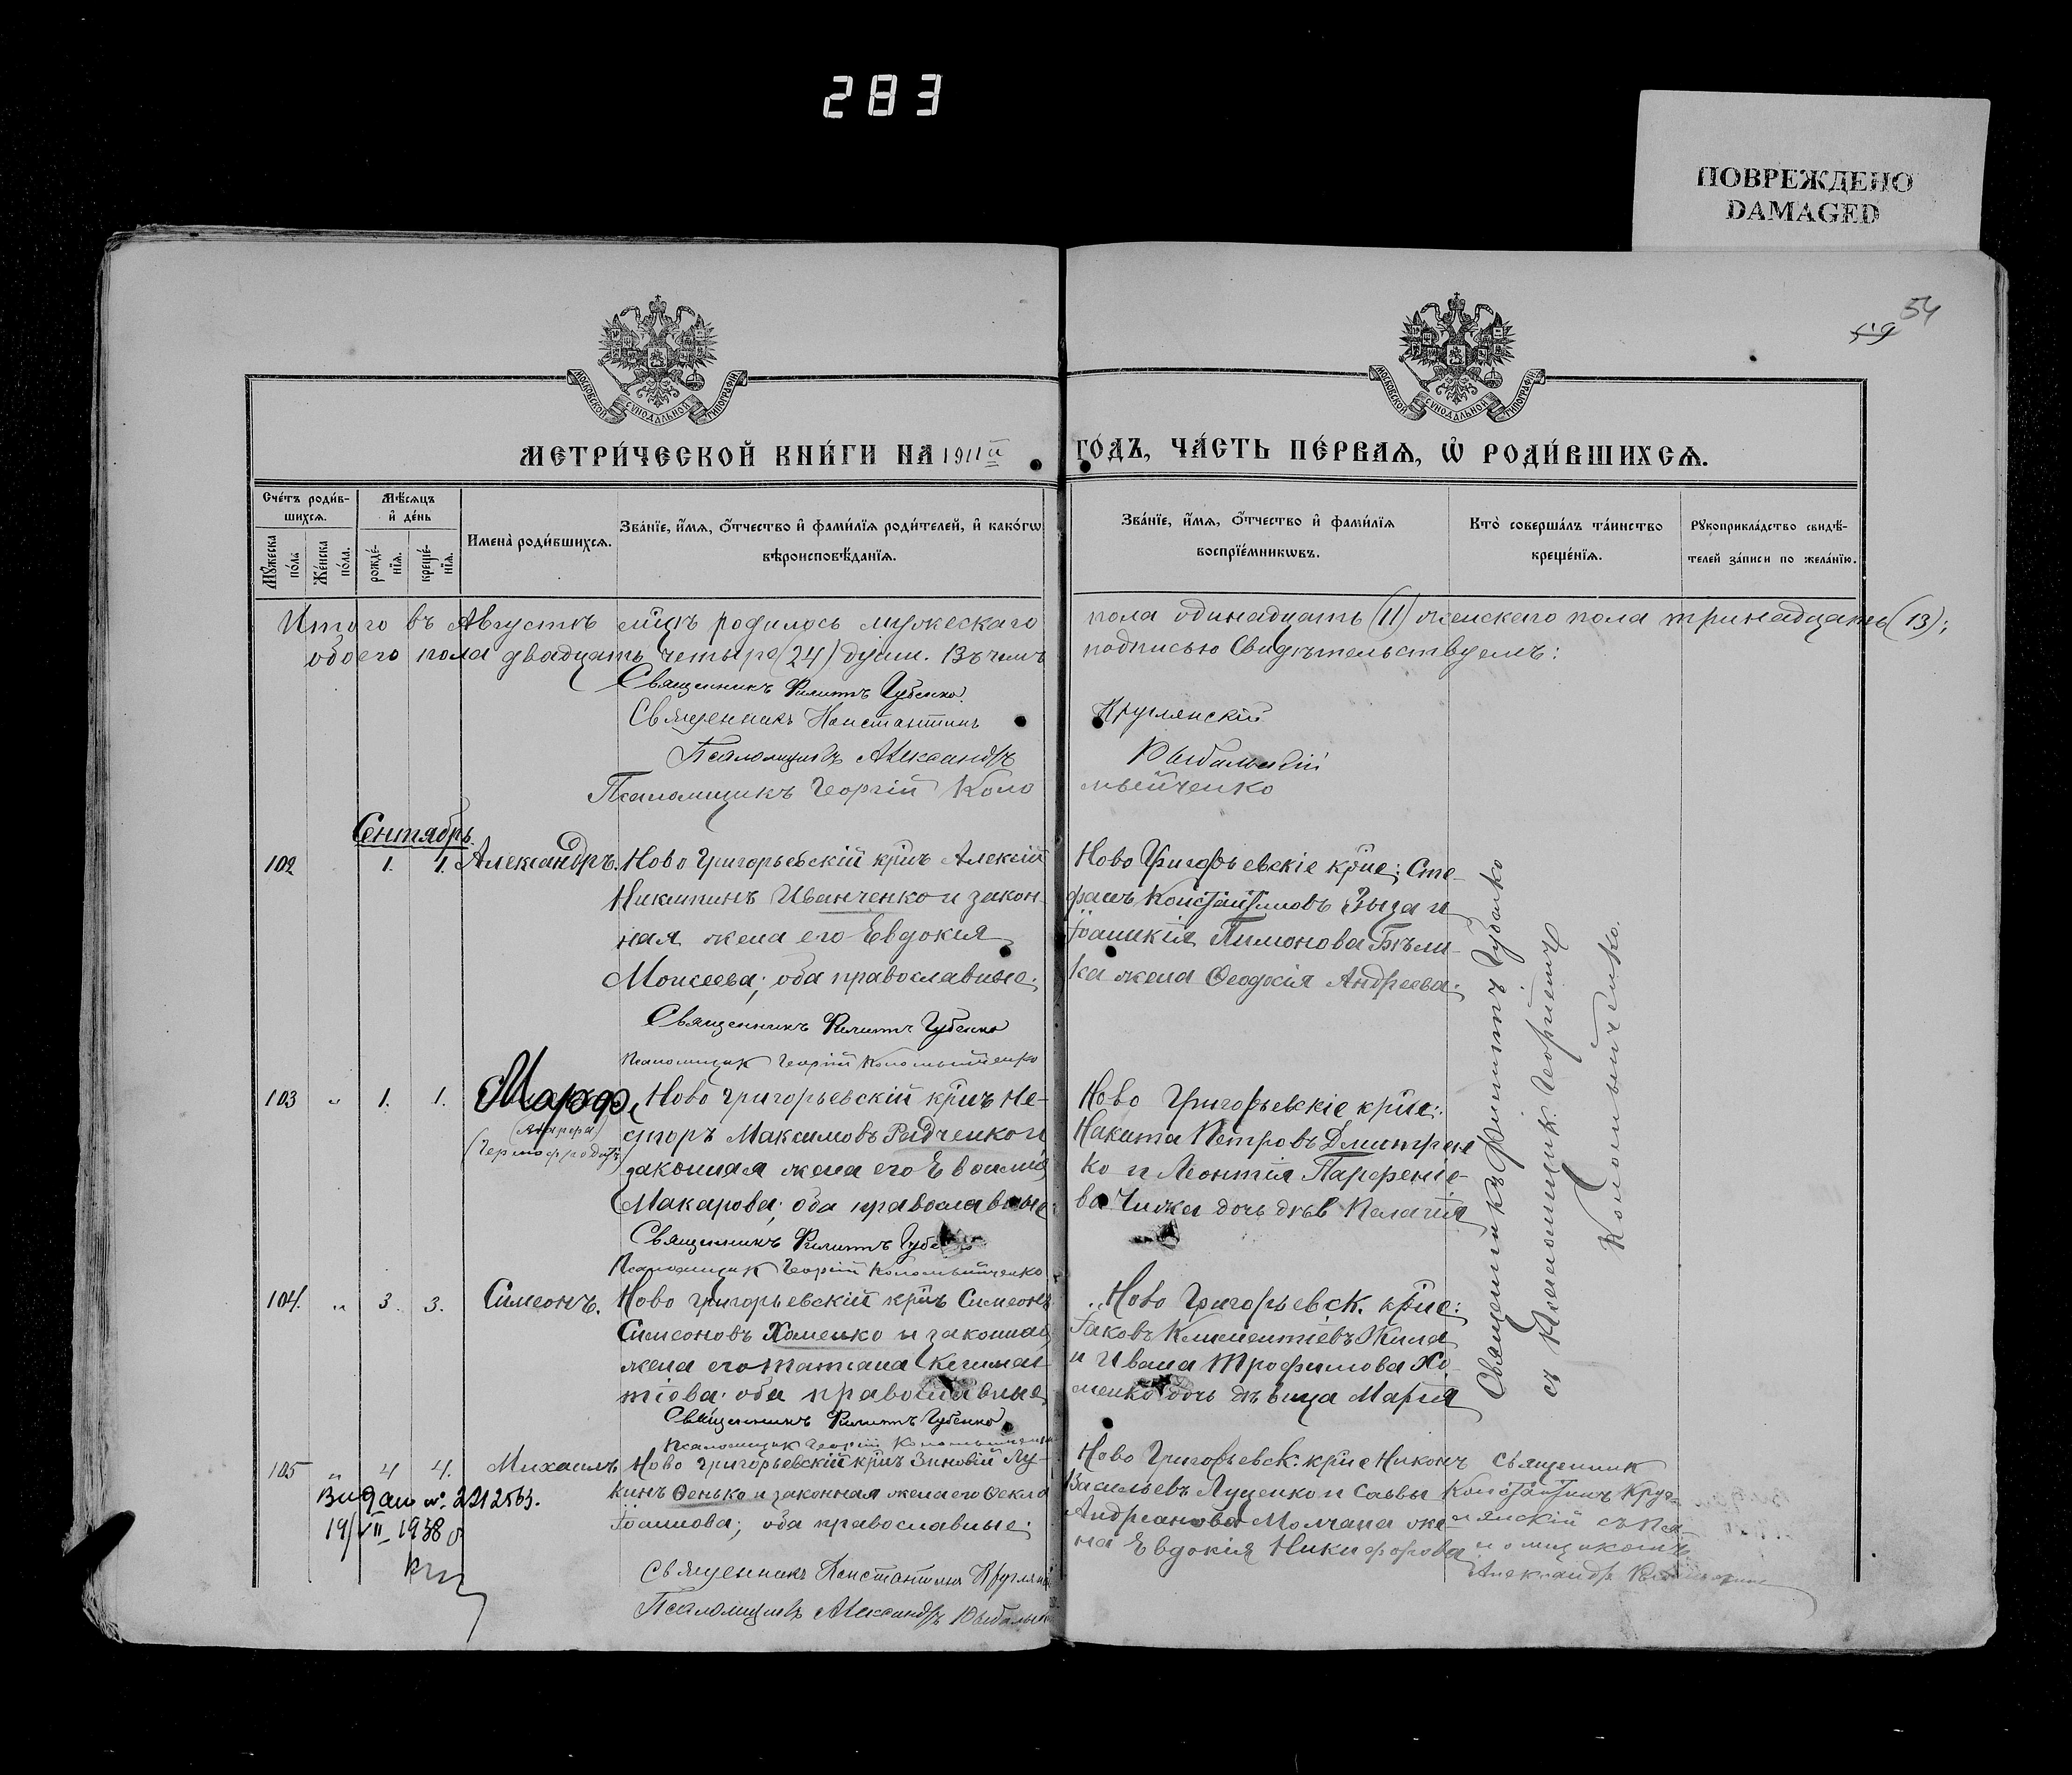 283
ПОВРЕЖДЕНО
DAMAGED
54
59
МОСКОВСКОЙ СѴНОДАЛЬНОЙ ТИПОГРАФІИ
МОСКОВСКОЙ СѴНОДАЛЬНОЙ ТИПОГРАФІИ
МЕТРИ́ЧЕСКОЙ КНИ́ГИ НА 1911й ГО́ДЪ, ЧА́СТЬ ПЕ́РВАѦ, Ѡ҆ РОДИ́ВШИХСѦ.
Сче́тъ роди́в-
шихсѧ.
Мꙋ́жеска по́ла.
Же́нска по́ла.
Мѣ́сѧцъ и҆ де́нь
рожде́-нїѧ.
креще́-нїѧ.
Имена̀ роди́вшихсѧ.
Зва́нїе, и҆́мѧ, ѻ҆́тчество и҆ фами́лїѧ роди́телей, и҆ како́гѡ
вѣроисповѣ́данїѧ.
Зва́нїе, и҆́мѧ, ѻ҆́тчество и҆ фами́лїѧ
воспрїе́мникѡвъ.
Кто̀ соверша́лъ та́инство
креще́нїѧ.
Рꙋкоприкла́дство свидѣ́-
телей за́писи по жела́нїю.
Итого въ Августѣ мцѣ родилось мужескаго пола одинадцать (11) женскаго пола тринадцать (13);
обоего пола двадцать четыре (24) души. Въ чемъ подписью Свидѣтельствуемъ:
Священникъ Филиппъ Губенко.
Священникъ Константинъ Круглянскій
Псаломщикъ Александръ Рыбальскій
Псаломщикъ Георгій Коломыйченко
Сентябрь
102 1. 1. Александръ.
Ново Григорьевскій крнъ Алексій
Никитинъ Иванченко и закон-
ная жена его Евдокія
Моисеева; оба православные.
Священникъ Филиппъ Губенко
Псаломщик Георгій Коломыйченко
Ново Григорьевскіе крне; Сте-
фанъ Константиновъ Зыза и
Іоаникія Пимонова Бѣли-
ка жена Феодосія Андреева.
Священникъ Филиппъ Губенко
съ Псаломщик. Георгіемъ
Коломыйченко.
103 " 1. 1. Марфа
(Гермофродитъ)
Ново Григорьевскій крнъ Не-
сторъ Максимовъ Радченко и
законная жена его Евфимія
Макарова; оба православные.
Священникъ Филиппъ Губенко
Псаломщик Георгій Коломыйченко
Ново Григорьевскіе крне:
Никита Петровъ Дмитрен
ко и Леонтія Парфеніе-
ва Чижа дочь дѣв Пелагія
104. " 3. 3. Симеонъ.
Ново Григорьевскій крнъ Симеонъ
Симеоновъ Хоменко и законная
жена его Татіана Климен-
тіева; оба православные
Священникъ Филиппъ Губенко
Псаломщик Георгій Коломыйченко
Ново Григорьевск. крне:
Іаковъ Климентіевъ Жила
и Ивана Трофимова Хо-
менко дочь дѣвица Марія
105 " 4 4. Михаилъ.
Ново Григорьевскій крнъ Зиновій Лу-
кинъ Фенько и законная жена его Фекла
Іоаннова; оба православные.
Священникъ Константинъ Круглянскій
Псаломщикъ Александръ Рыбальскій
Ново Григорьевск. крне Никонъ
Васильевъ Луценко и Саввы
Андреанова Молчана же-
на Евдокія Никифорова
Священник
Константинъ Круг-
лянскій съ Пса-
ломщикомъ
Александр.
Видано №. 221256
19/VII 1938 р